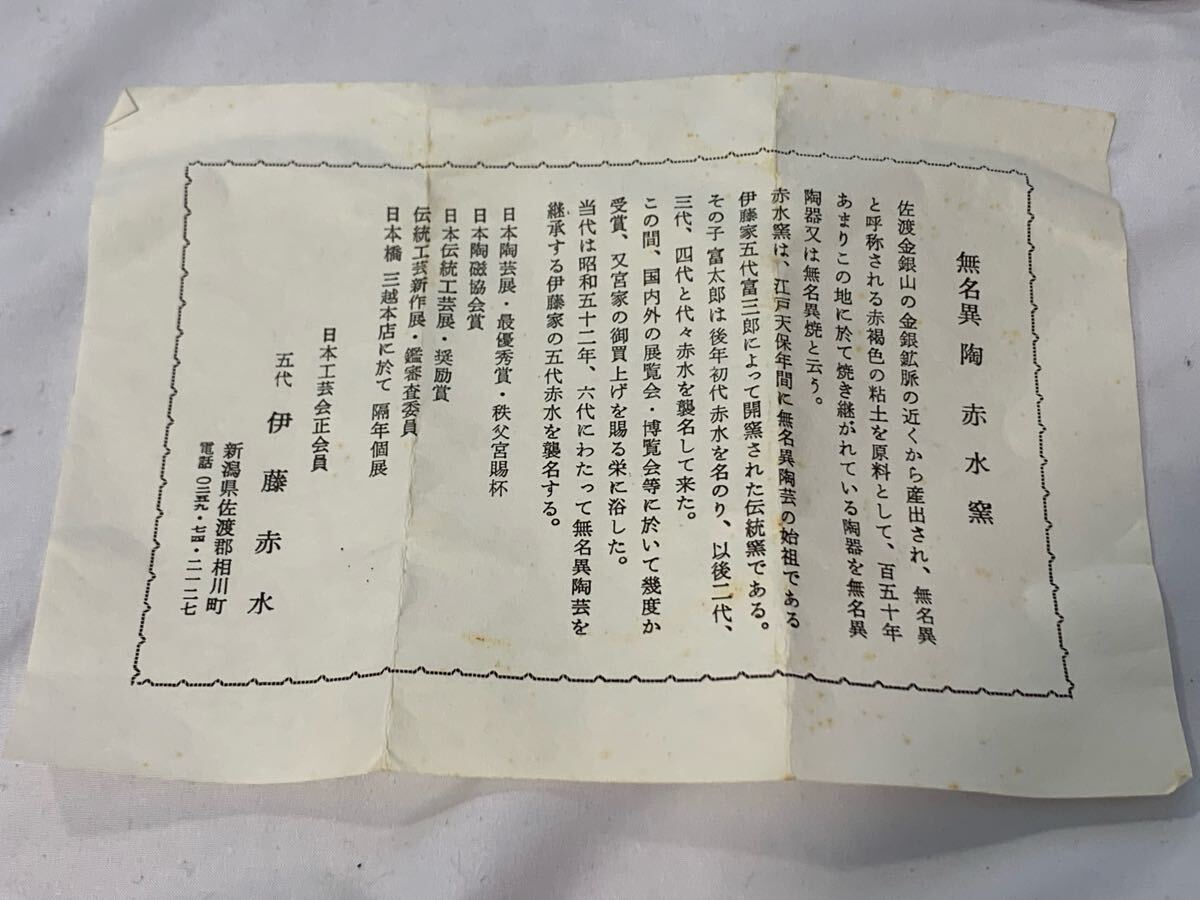 無名異陶 赤水窯
佐渡金銀山の金銀鉱脈の近くから産出され、無名異
と呼称される赤褐色の粘土を原料として、百五十年
あまりこの地に於て焼き継がれている陶器を無名異
陶器又は無名異焼と云う。
赤水窯は、江戸天保年間に無名異陶芸の始祖である
伊藤家五代富三郎によって開窯された伝統窯である。
その子富太郎は後年初代赤水を名のり、以後二代、
三代、四代と代々赤水を襲名して来た。
この間、国内外の展覧会・博覧会等に於いて幾度か
受賞、又宮家の御買上げを賜る栄に浴した。
当代は昭和五十二年、六代にわたって無名異陶芸を
継承する伊藤家の五代赤水を襲名する。
日本陶芸展・最優秀賞・秩父宮賜杯
日本陶磁協会賞
日本伝統工芸展・奨励賞
伝統工芸新作展・鑑審査委員
日本橋 三越本店に於て 隔年個展
日本工芸会正会員
五代 伊藤赤水
新潟県佐渡郡相川町
電話 〇二五九・七四・二一二七